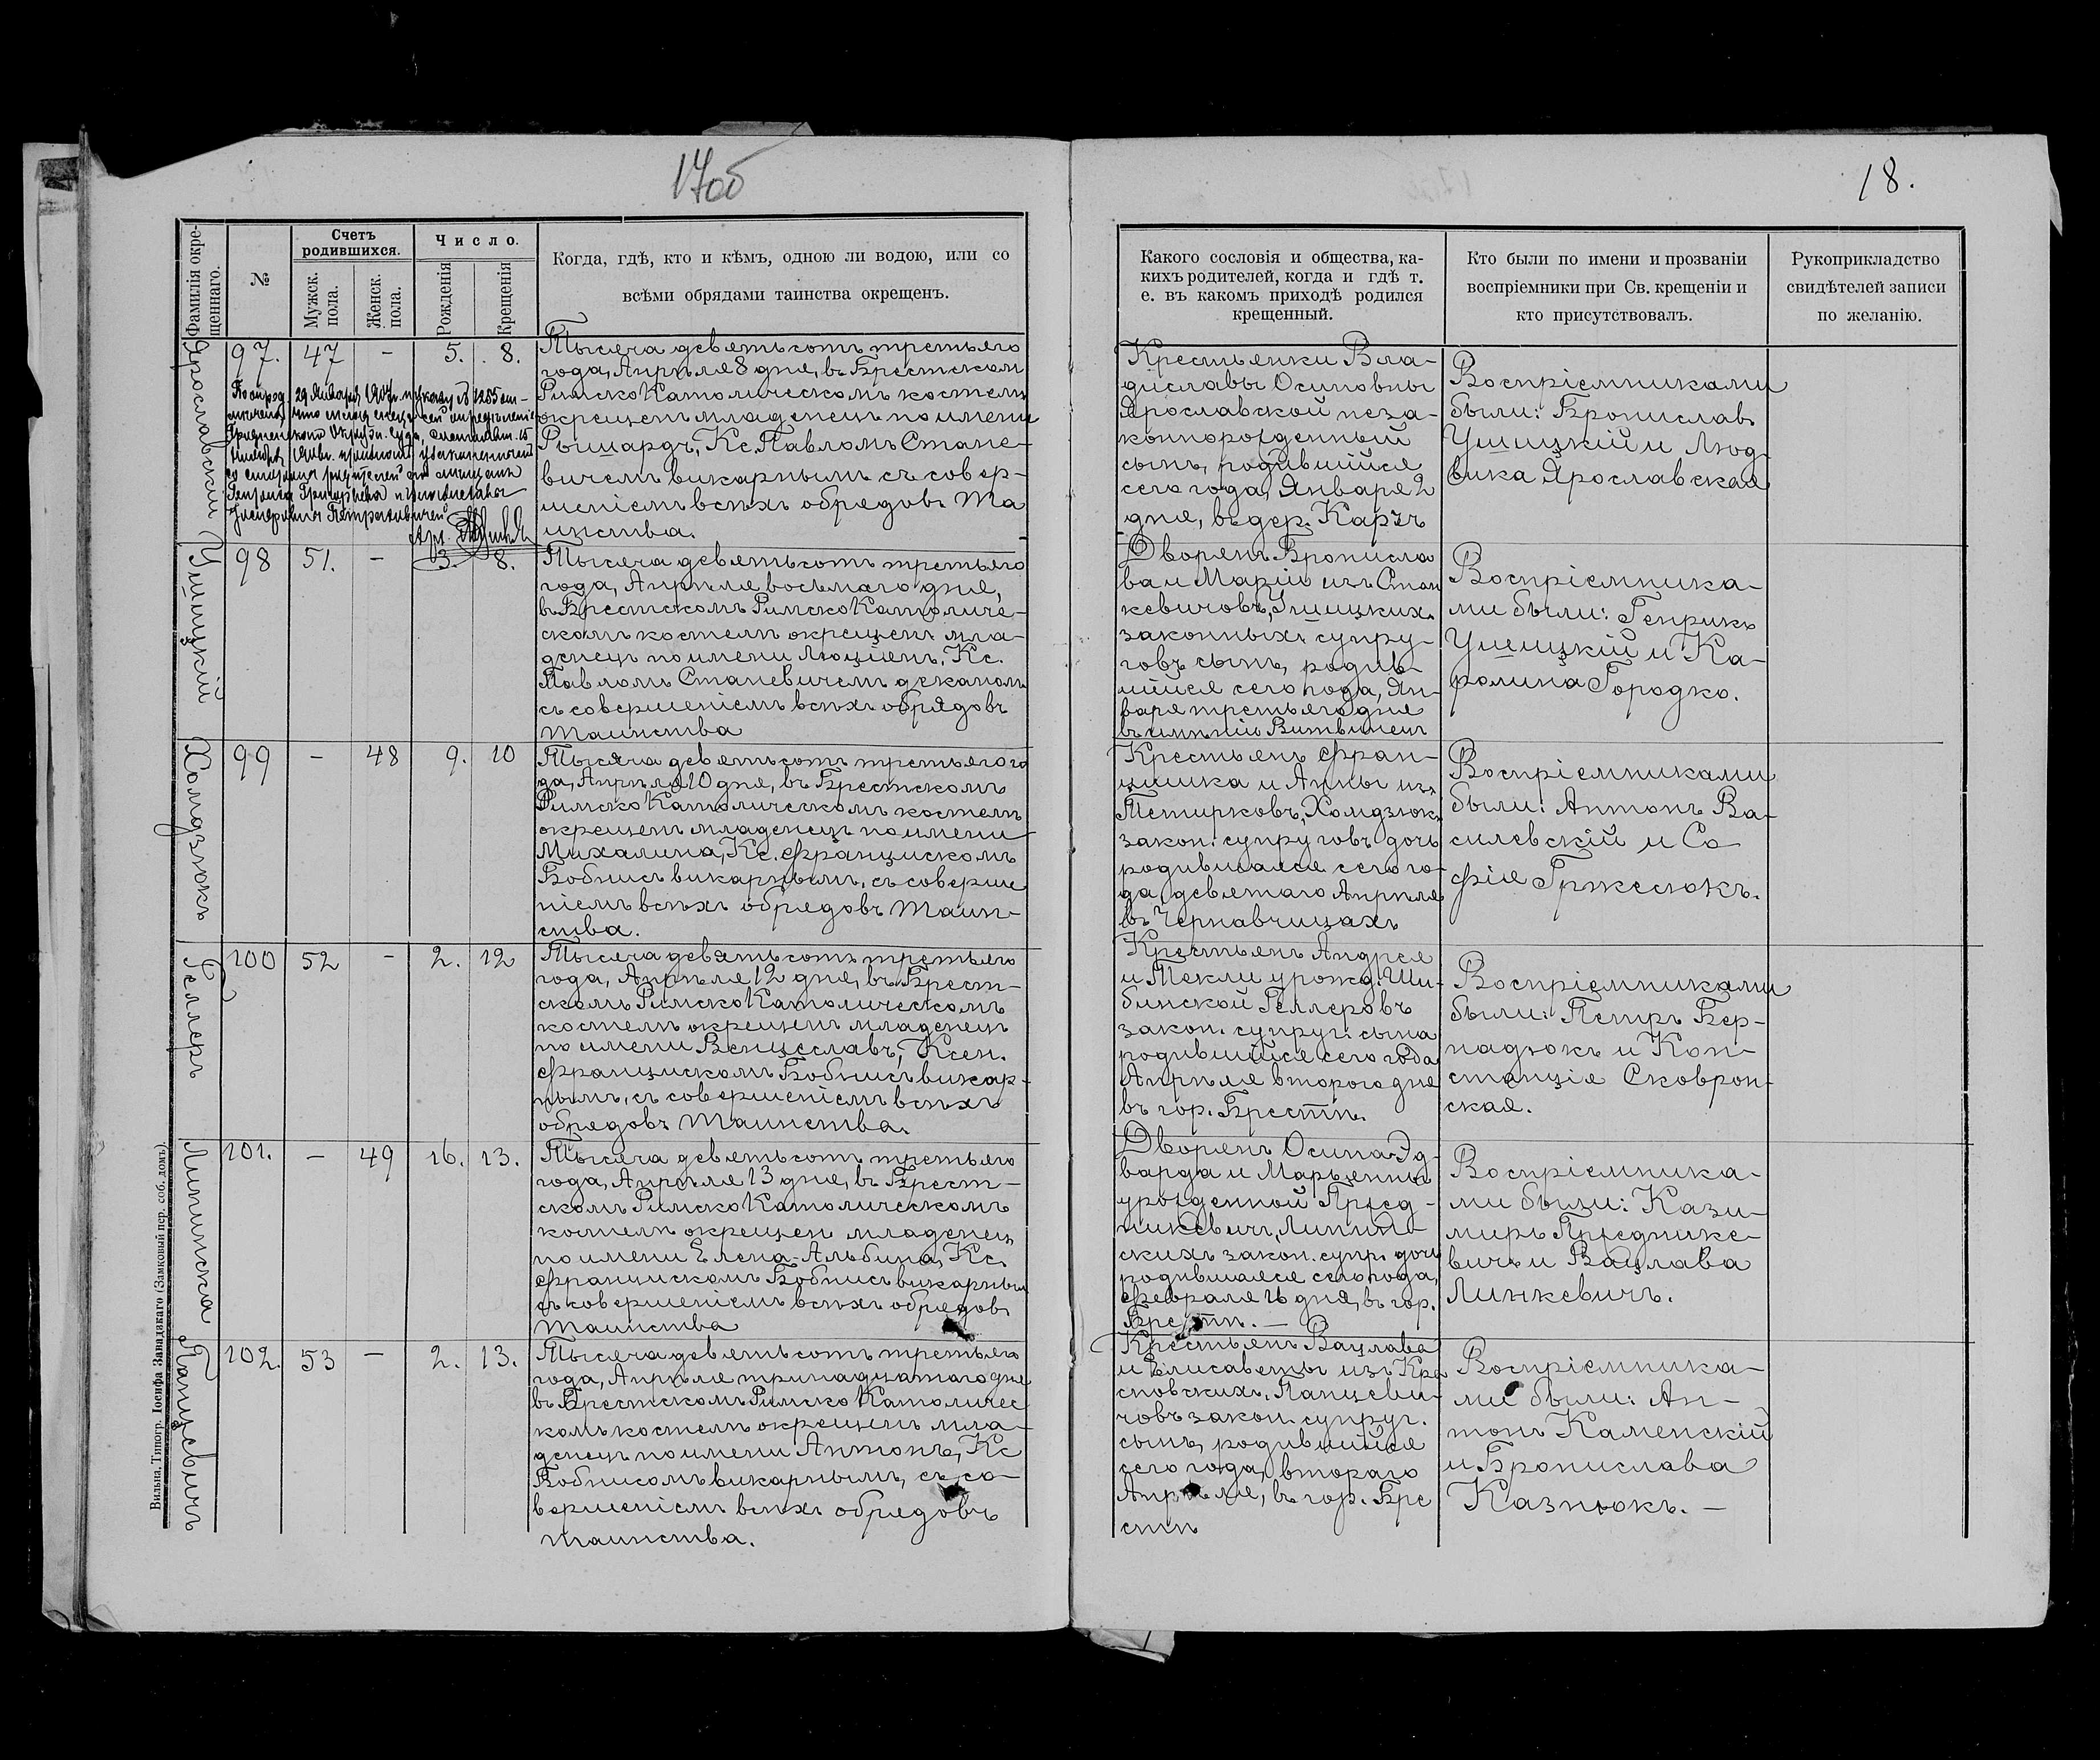 17об
Фамилія окре-
щеннаго.
№
Счетъ
родившихся.
Мужск.
пола.
Женск.
пола.
Число.
Рожденія
Крещенія
Когда, гдѣ, кто и кѣмъ, одною ли водою, или со
всѣми обрядами таинства окрещенъ.
Ярославскій
97. 47 - 5. 8.
Тысяча девятьсотъ третьяго
года, Апрѣля 8 дня, въ Брестском
Римско Католическомъ костелѣ
окрещенъ младенецъ по имени
Рышардъ, Кс. Павломъ Стане-
вичемъ викарнымъ съ совер-
шеніемъ всѣхъ обрядовъ Та
инства.
Ушицкій
98 51. - 3. 8.
Тысяча девятьсотъ третьяго
года, Апрѣля восьмаго дня,
въ Брестскомъ Римско Католиче-
скомъ костелѣ окрещенъ мла-
денецъ по имени Люціенъ, Кс.
Павломъ Станевичемъ деканомъ
съ совершеніемъ всѣхъ обрядовъ
Таинства
Хомдзюкъ
99 - 48 9. 10
Тысяча девятьсотъ третьяго го
да, Апрѣля 10 дня, въ Брестскомъ
Римско Католическомъ костелѣ
окрещенъ младенецъ по имени
Михалина, Кс. Францискомъ
Бобнисъ викарнымъ, съ соверше
ніемъ всѣхъ обрядовъ Таин-
ства.
Геллеръ
100 52 - 2. 12
Тысяча девятьсотъ третьяго
года, Апрѣля 12 дня, въ Брест-
скомъ Римско Католическомъ
костелѣ окрещенъ младенецъ
по имени Венцеславъ, Ксен.
Францискомъ Бобнисъ викар-
нымъ, съ совершеніемъ всѣхъ
обрядовъ Таинства.
Липинска
101. - 49 16. 13.
Тысяча девятьсотъ третьяго
года, Апрѣля 13 дня, въ Брест-
скомъ Римско Католическомъ
костелѣ окрещен младенец
по имени Елена-Альбина, Кс.
Францискомъ Бобнисъ викарным
съ совершеніемъ всѣхъ обрядовъ
Таинства
Панцевичъ
102. 53 - 2. 13.
Тысяча девятьсотъ третьяго
года, Апрѣля тринадцатаго дня
въ Брестскомъ Римско Католичес
комъ костелѣ окрещенъ мла-
денецъ по имени Антонъ, Кс
Бобнисомъ викарнымъ, съ со-
вершеніемъ всѣхъ обрядовъ
Таинства.
Вильна. Типогр. Іосифа Завадзкаго (Замковый пер. соб. домъ).
18.
Какого сословія и общества, ка-
кихъ родителей, когда и гдѣ т.
е. въ какомъ приходѣ родился
крещенный.
Кто были по имени и прозваніи
воспріемники при Св. крещеніи и
кто присутствовалъ.
Рукоприкладство
свидѣтелей записи
по желанію.
Крестьянки Вла-
диславы Осиповны
Ярославской неза-
коннорожденный
сынъ, родившійся
сего года, Января 2
дня, въ дер.
Воспріемниками
были: Брониславъ
Ушицкій и Люд-
вика Ярославская
Дворянъ Бронисла
ва и Маріи изъ Стан
кевичовъ, Ушицкихъ
законныхъ супру-
говъ сынъ, родив-
шійся сего года, Ян-
варя третьяго дня
въ имѣніи
Воспріемника-
ми были: Генрикъ
Ушицкій и Ка-
ролина Городко.
Крестьянъ Фран-
цишка и Анны изъ
Тетирковъ, Хомдзюкъ
закон. супруговъ дочь
родившаяся сего го-
да, девятаго Апрѣля
въ Чернавчицахъ
Воспріемниками
были: Антонъ Ва-
силевскій и Со
фія Гржесюкъ.
Крестьянъ Андрея
и Теклы урожд. Ши-
бинской Геллеровъ
закон. супруг. сына
родившійся сего года
Апрѣля второго дня
въ гор. Брестѣ.
Воспріемниками
были: Петръ Бер-
надюкъ и Кон-
станція Сковрон-
ская.
Дворянъ Осипа-Эд-
варда и Марьянны
урожденной Пржед-
пикевич, Липин-
скихъ закон. супр. дочь
родившаяся сего года,
Февраля 16 дня, въ гор.
Брестѣ. -
Воспріемника-
ми были: Кази-
миръ
и Вацлава
Линкевичъ.
Крестьянъ Вацлава
и Елисаветы изъ Кра
сновскихъ, Панцеви-
човъ закон. супруг.
сынъ, родившійся
сего года, втораго
Апрѣля, въ гор. Бре
стѣ
Воспріемника-
ми были: Ан-
тонъ Каменскій
и Бронислава
Казнюкъ. -